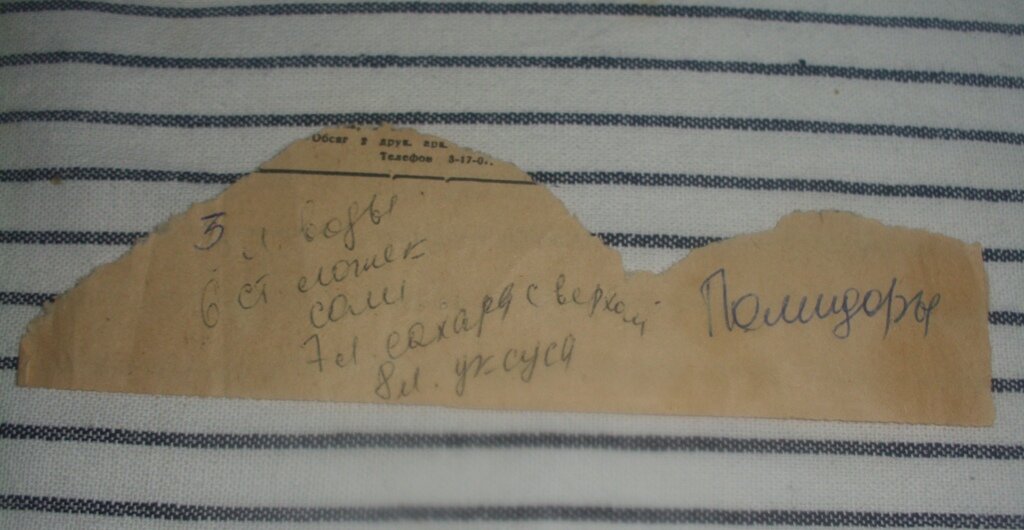 Обсяг 2 друк. арк.
Телефон 3-17-0..
5 л. воды
6 ст ложек
соли
7 л сахара с верхом
8 л. уксуса
Помидоры